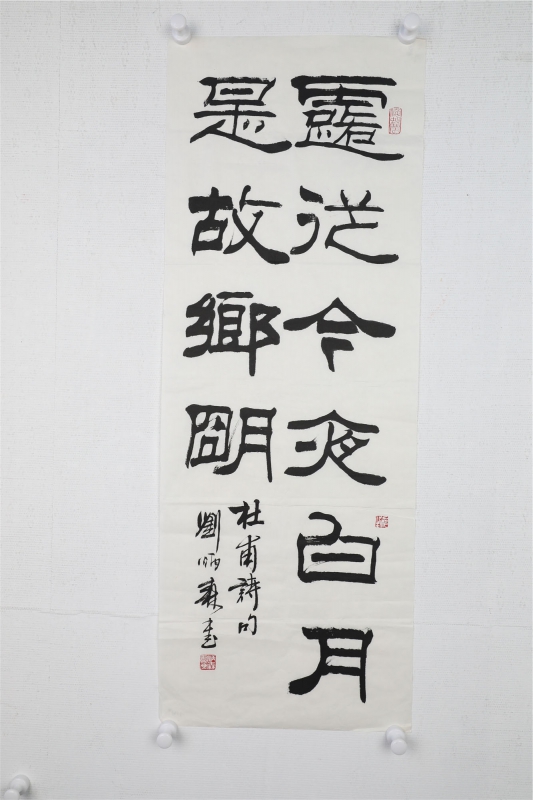 露從今夜白月
是故鄉明
杜甫詩句
劉炳森書